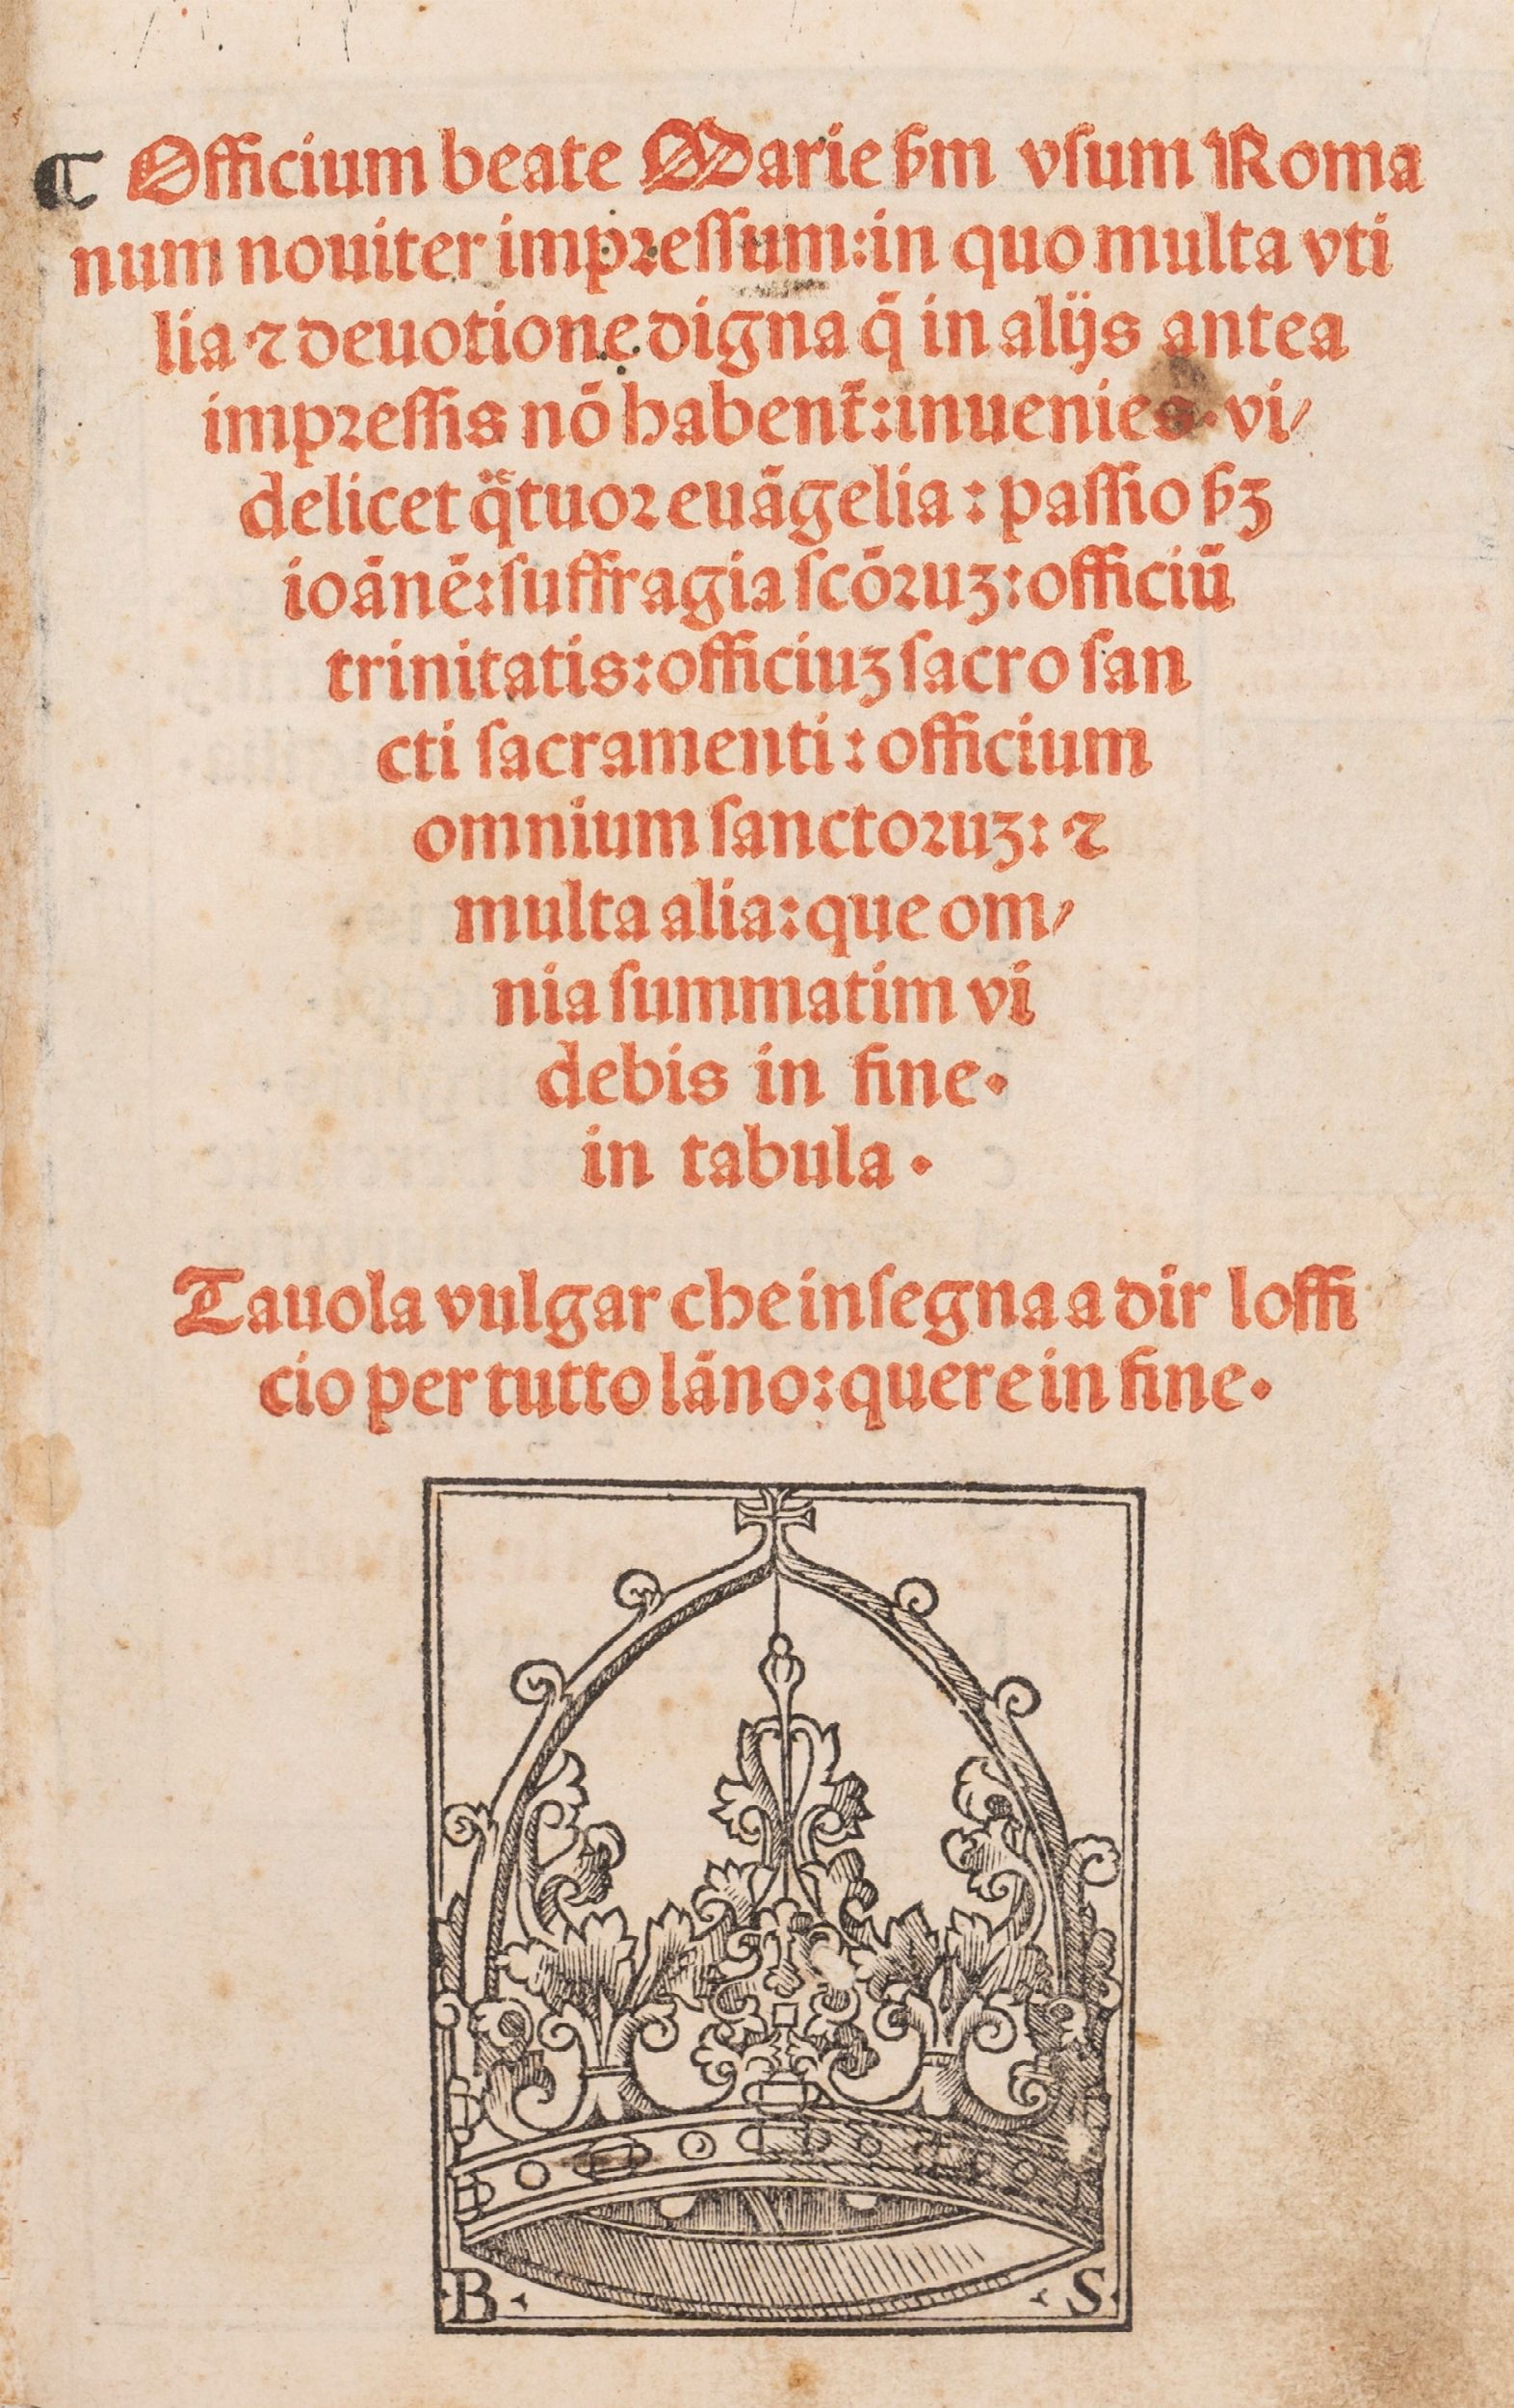 ¶ Officium beate Marie ẜm vſum Roma
num nouiter impꝛeſſum:in quo multa vti
lia ⁊ deuotione digna q̄ in alijs antea
impꝛeſſis nō habent᷑:inuenies.vi⸗
delicet q̈tuoꝛ euāgelia: paſſio ẜꝫ
ioānē:ſuffragia ſcōꝛuꝫ:officiū
trinitatis:officiuꝫ ſacro ſan
cti ſacramenti: officium
omnium ſanctoꝛuꝫ: ⁊
multa alia:que om⸗
nia ſummatim vi
debis in fine.
in tabula.
Tauola vulgar che inſegna a dir loffi
cio per tutto lāno:quere in fine.
·B· ·S·